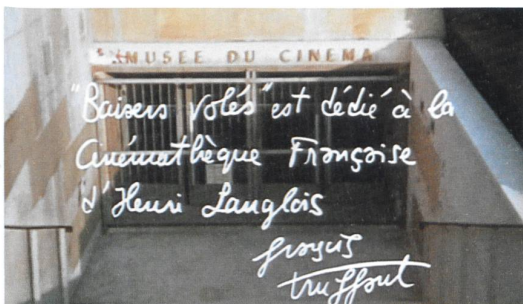 MUSEE DU CINEMA
"Baisers volés" est dédié à la
Cinémathèque Française
d'Henri Langlois
françois
truffaut